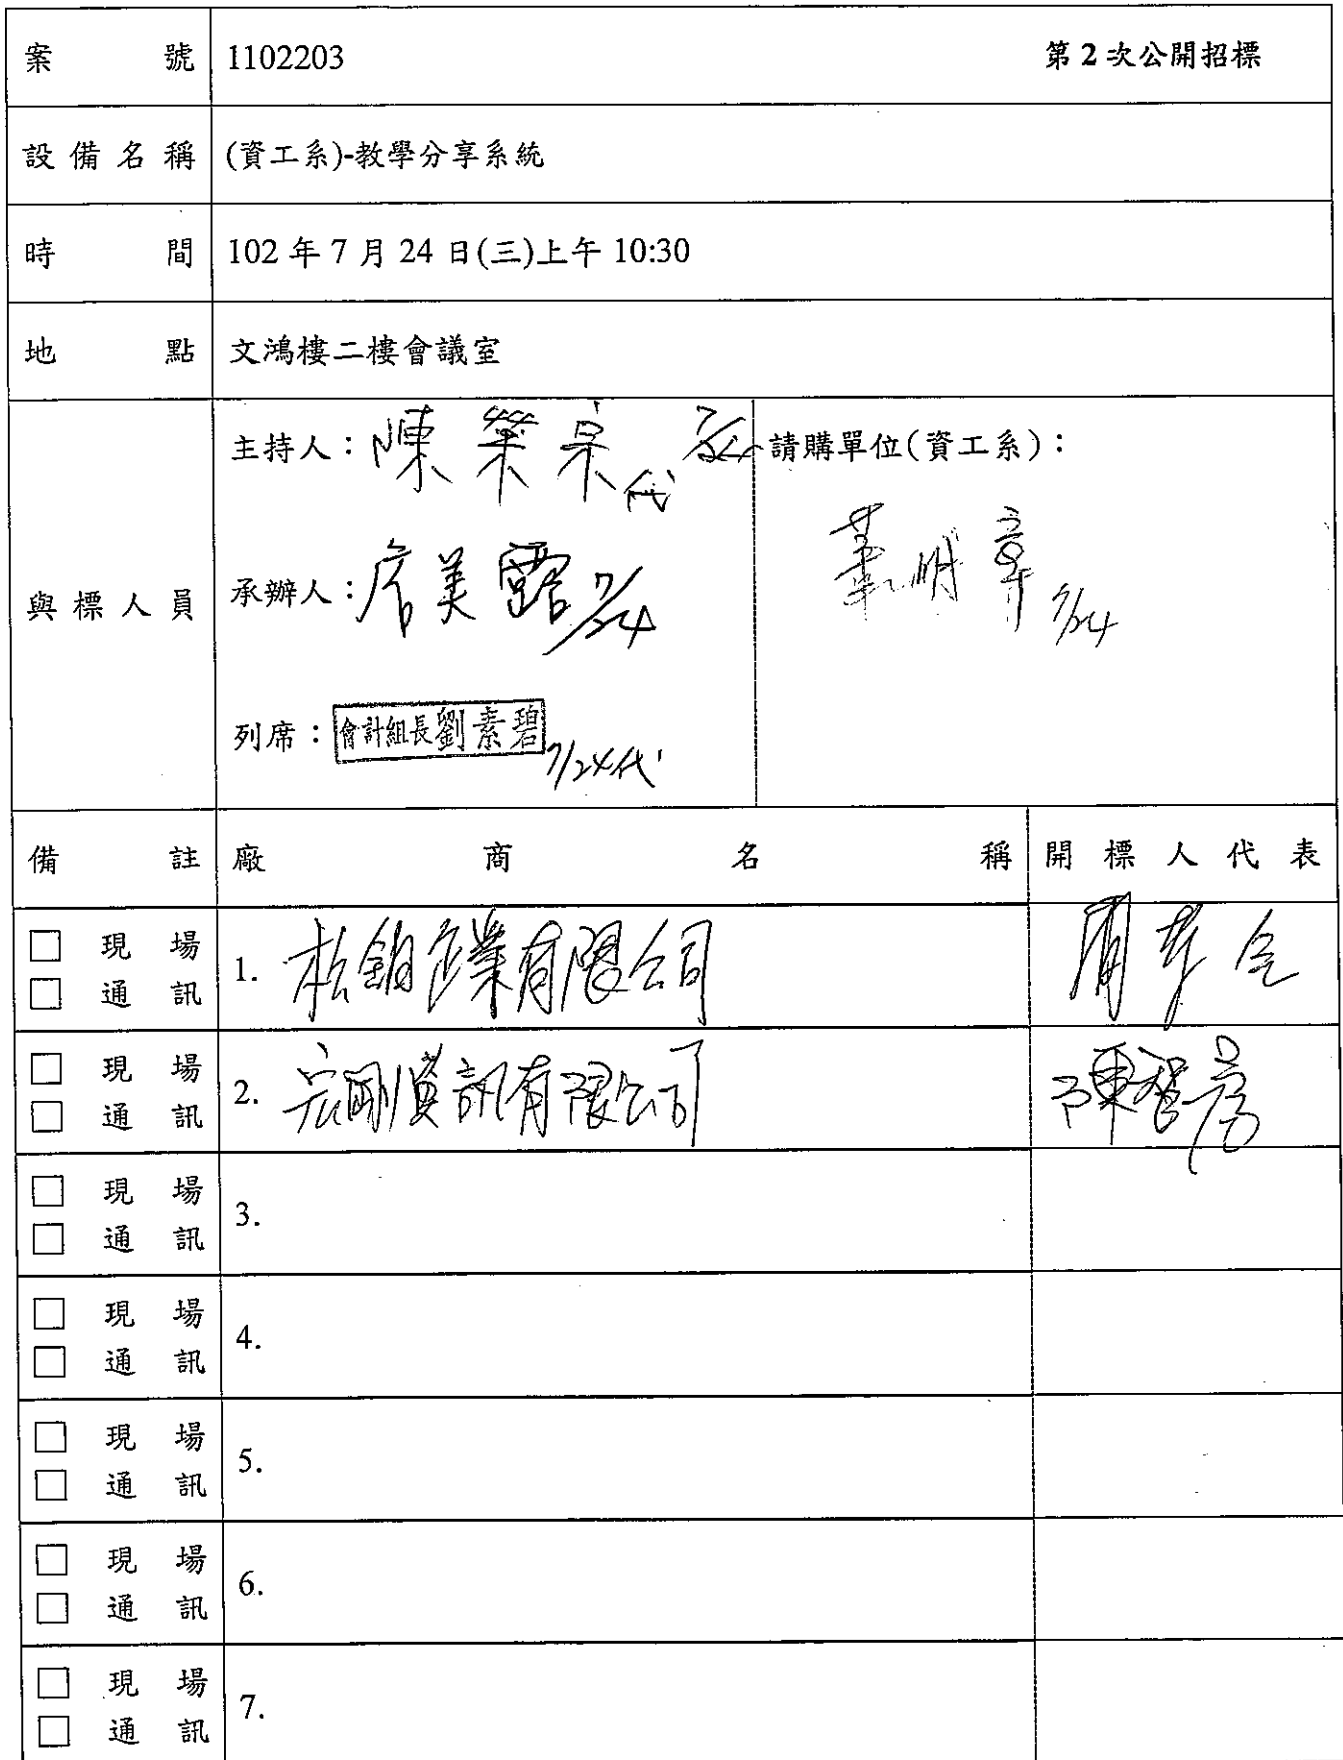 案號 1102203 第2次公開招標
設備名稱 (資工系)-教學分享系統
時間 102 年 7 月 24 日(三)上午 10:30
地點 文鴻樓二樓會議室
與標人員
主持人：陳榮 代
請購單位(資工系)：
明章 7/24
承辦人：美露 7/24
列席：會計組長劉素碧 7/24代
備註 廠商名稱 開標人代表
□ 現場
□ 通訊
1. 松 企業有限公司
□ 現場
□ 通訊
2. 宏剛資訊有限公司 陳
□ 現場
□ 通訊
3.
□ 現場
□ 通訊
4.
□ 現場
□ 通訊
5.
□ 現場
□ 通訊
6.
□ 現場
□ 通訊
7.